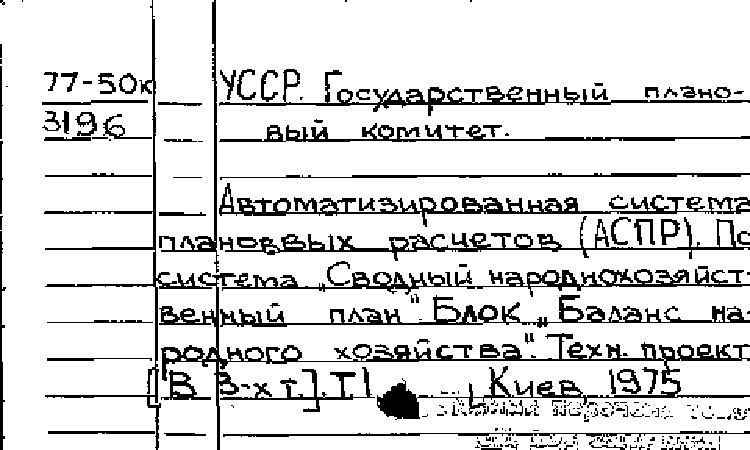 77-50к УССР. Государственный плано-
3196 вый комитет.
Автоматизированная система
плановвых расчетов (АСПР). По
система „Сводный народнохозяйст-
венный план". Блок „Баланс на-
родного хозяйства". Техн. проект
[В 3-х т.]. Т1 , Киев, 1975